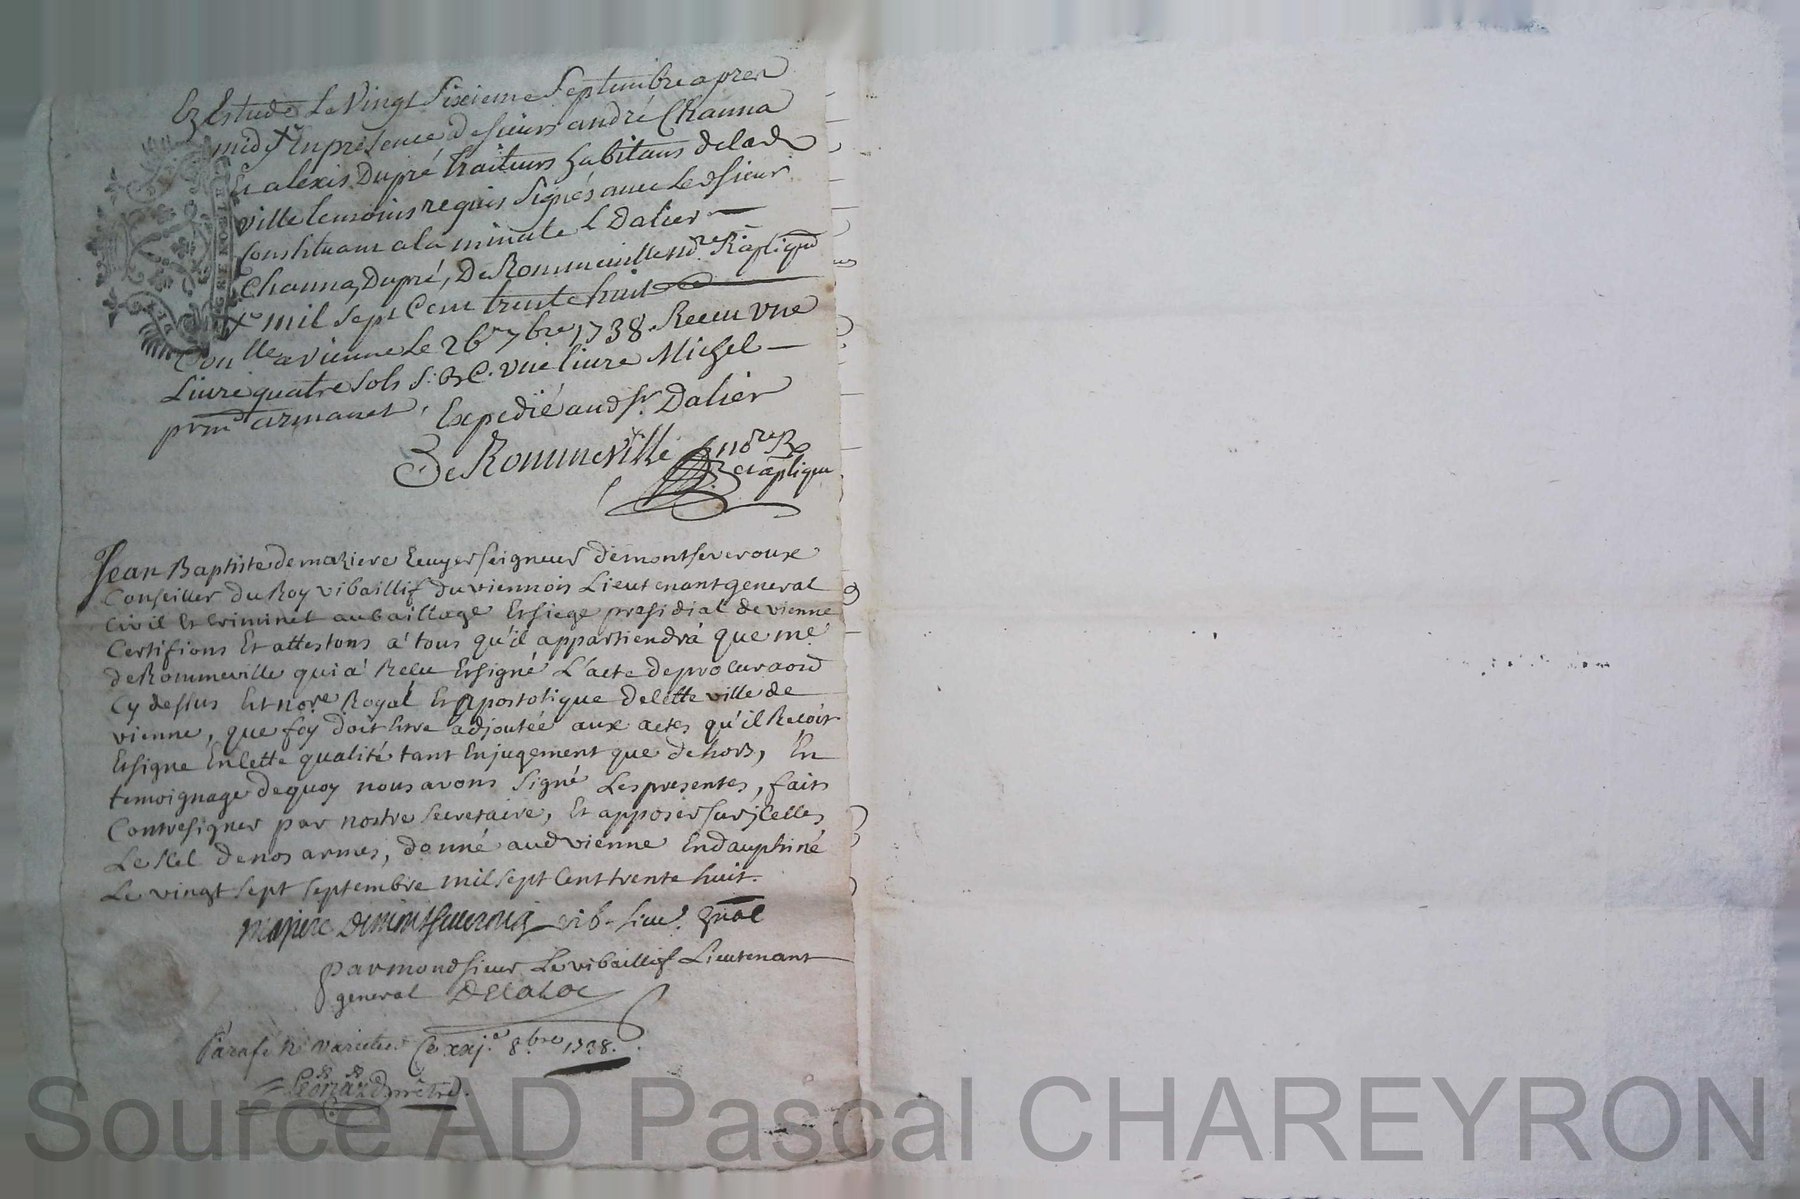 Estude Le Vingt Sixieme Septembre apres
midy x En presence de sieurs andré Channa
Et alexis Dupré traiteurs habitans de lad.
ville temoins requis Signés avec Led Sieur
Constituant a la minute L Dalier
Channa, Dupré, De Rommeville no.re R. aplique
x mil Sept Cent trente huit
Con.lle a vienne Le 26 7bre 1738. Receu vne
Livre quatre sols S. B C. vne livre Michel
armanet, Expedié aud Sr. Dalier
De Rommeville no.re R.
et aplique
Jean Baptiste demaziere Ecuyer Seigneur de montseveroux
Conseiller du Roy vibaillif du viennois Lieutenant general
Civil Et Criminel au baillage Et siege presidial de vienne
Certifions Et attestons a tous qu'il appartiendrá que me
de Rommeville qui a Receu Et signé L'acte de procura[ti]on
Cy dessus Est no.re Royal Et Apostolique de Cette ville de
vienne, que foy doit Etre adjoutée aux actes qu'il Recoit
Et signe En Cette qualité tant En jugement que dehors, En
temoignage de quoy nous avons Signé Les presentes, fait
Contresigner par nostre Secretaire, Et apposer sur jCelles
Le scel de nos armes, donné aud vienne En dauphiné
Le vingt sept septembre mil sept Cent trente huit.
maziere demontseveroux vib. Lieu. gnal
par mondsieur Le vibaillif Lieutenant
general Delaloe
Parafé Ne varietur Ce xxj.e 8.bre 1738.
Source AD Pascal CHAREYRON